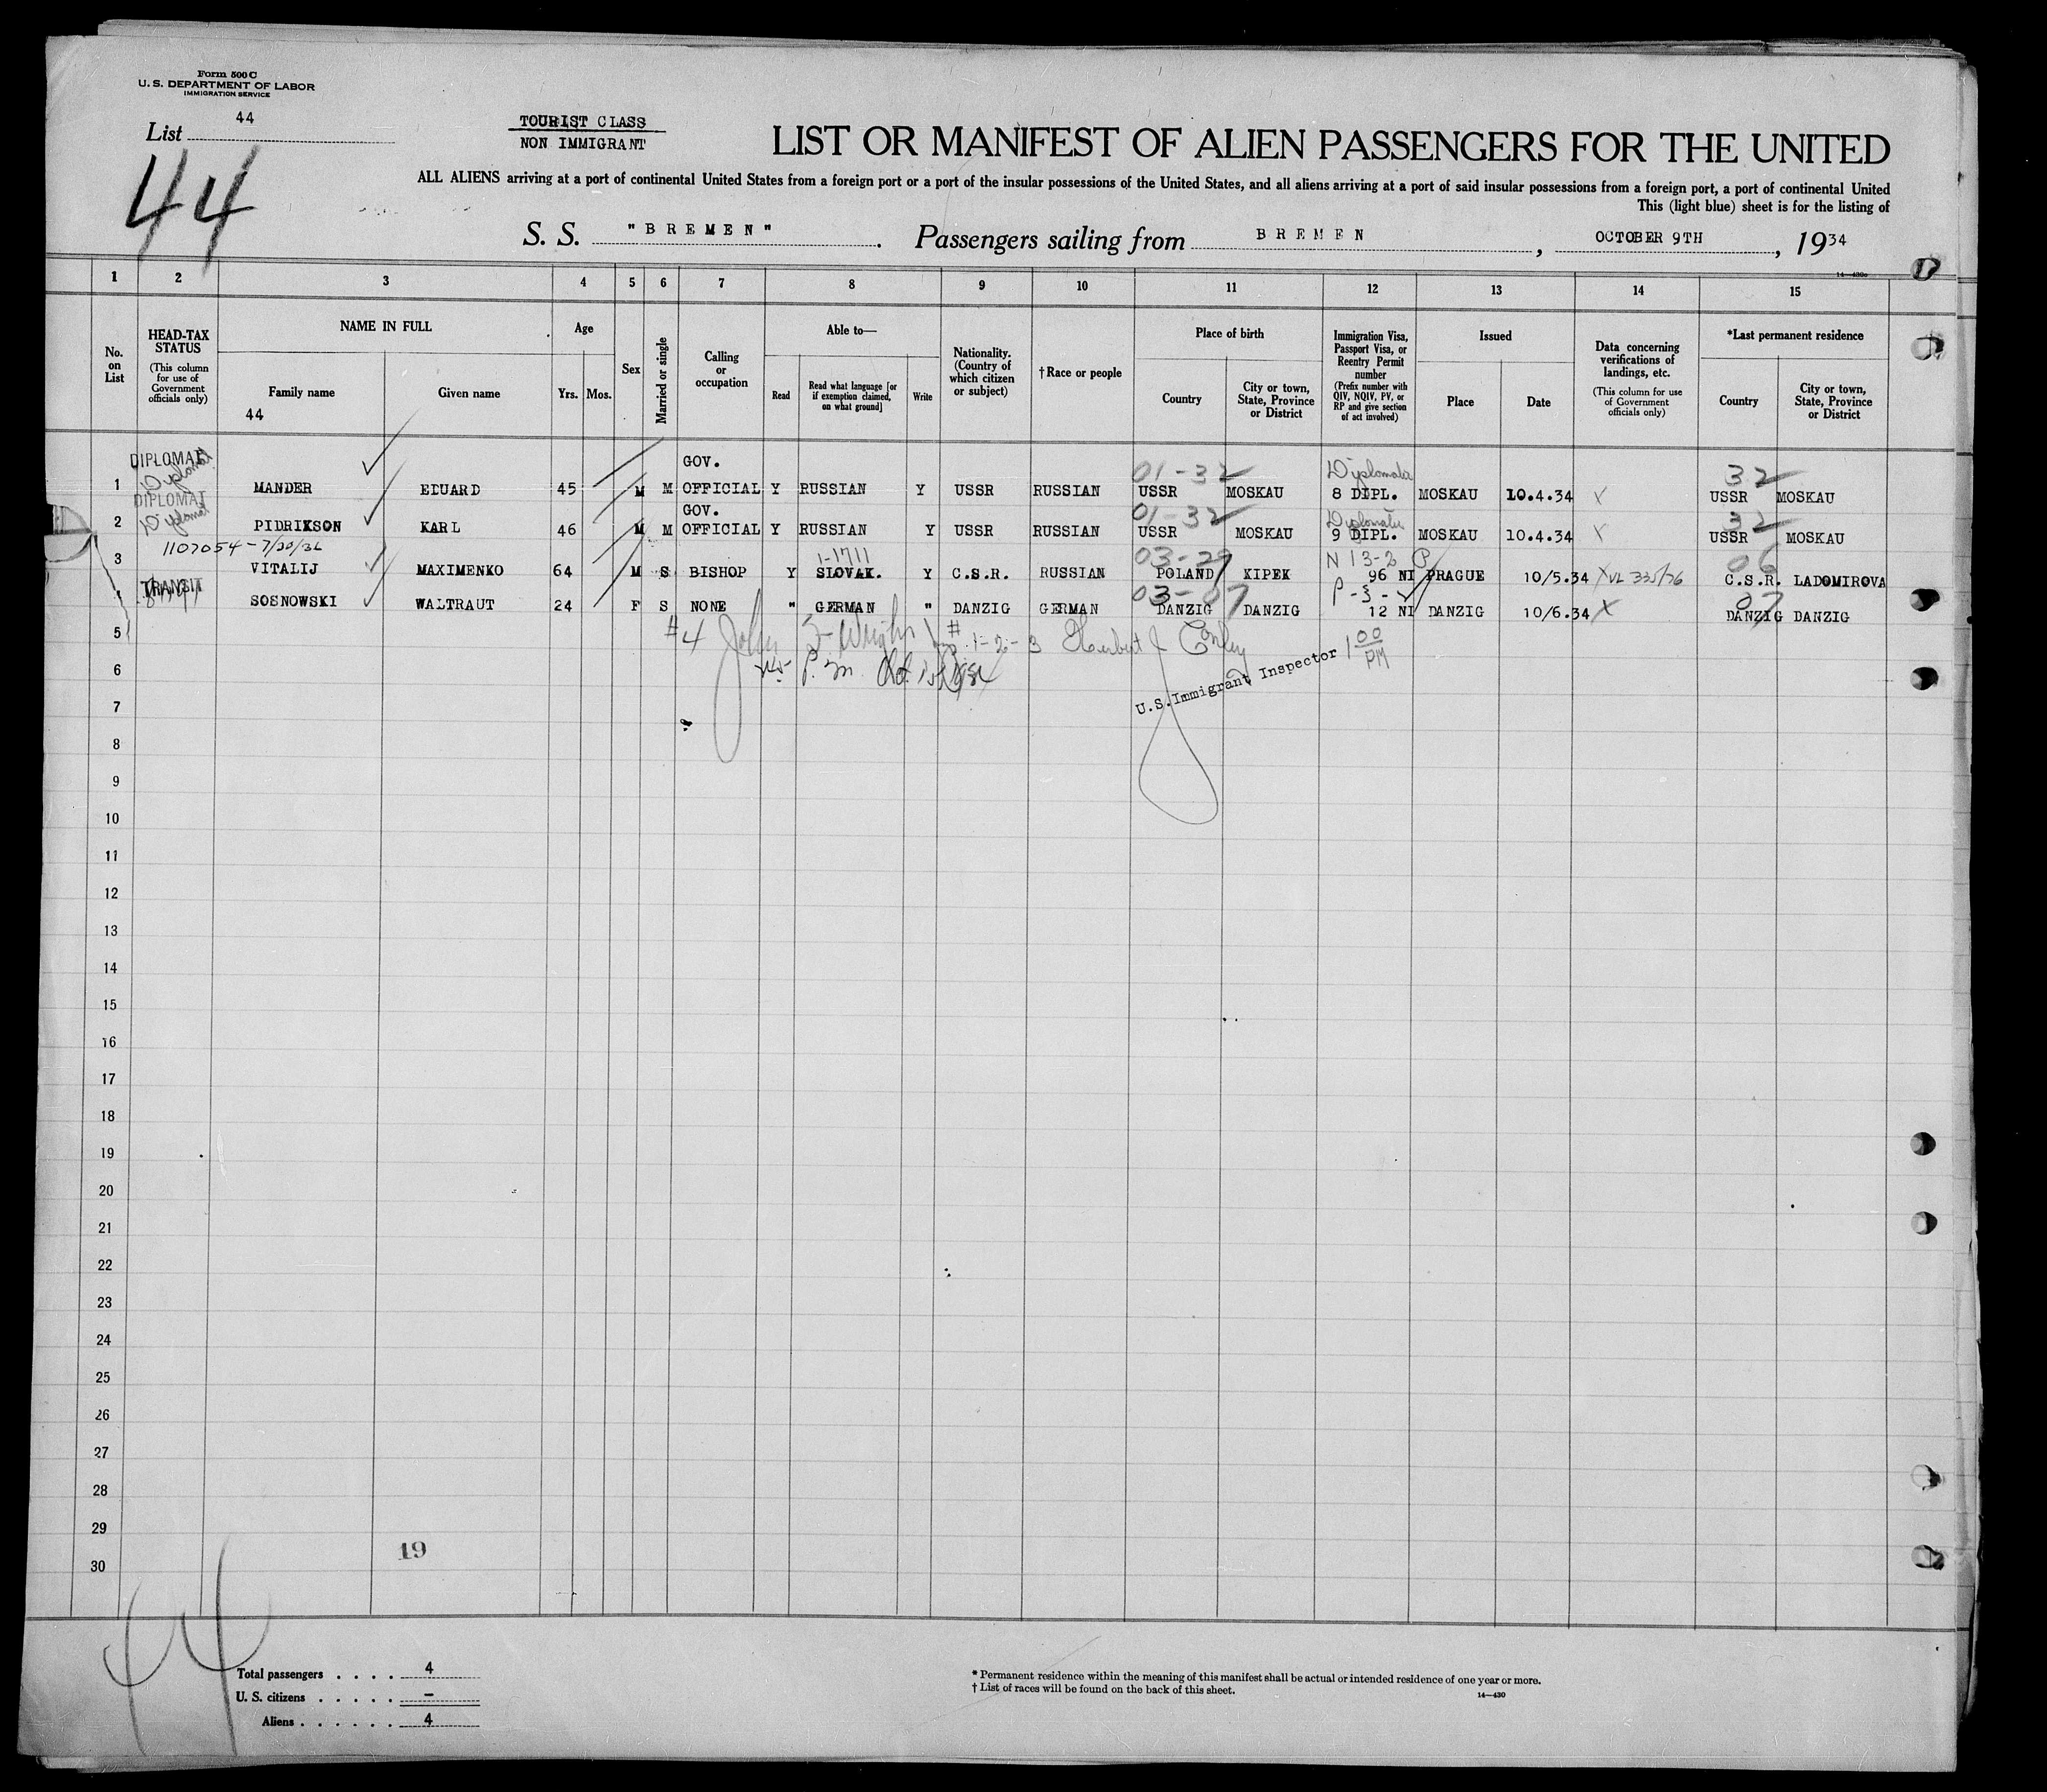 Form 500 C
U. S. DEPARTMENT OF LABOR
IMMIGRATION SERVICE
List 44
44
TOURIST CLASS
NON IMMIGRANT
LIST OR MANIFEST OF ALIEN PASSENGERS FOR THE UNITED
ALL ALIENS arriving at a port of continental United States from a foreign port or a port of the insular possessions of the United States, and all aliens arriving at a port of said insular possessions from a foreign port, a port of continental United
This (light blue) sheet is for the listing of
S. S. "BREMEN". Passengers sailing from BREMEN, OCTOBER 9TH, 1934
14—430c
1 2 3 4 5 6 7 8 9 10 11 12 13 14 15
No. on List
HEAD-TAX STATUS
(This column for use of Government officials only)
NAME IN FULL
Family name
Given name
44
Age
Yrs. Mos.
Sex
Married or single
Calling or occupation
Able to—
Read
Read what language [or if exemption claimed, on what ground]
Write
Nationality. (Country of which citizen or subject)
†Race or people
Place of birth
Country
City or town, State, Province or District
Immigration Visa, Passport Visa, or Reentry Permit number
(Prefix number with QIV, NQIV, PV, or RP and give section of act involved)
Issued
Place
Date
Data concerning verifications of landings, etc.
(This column for use of Government officials only)
*Last permanent residence
Country
City or town, State, Province or District
DIPLOMAT GOV. 01-32 Diplomatic 32
Diplomat
1 MANDER EDUARD 45 M M OFFICIAL Y RUSSIAN Y USSR RUSSIAN USSR MOSKAU 8 DIPL. MOSKAU 10.4.34 X USSR MOSKAU
DIPLOMAT GOV. 01-32 Diplomatic 32
Diplomat
2 PIDRIKSON KARL 46 M M OFFICIAL Y RUSSIAN Y USSR RUSSIAN USSR MOSKAU 9 DIPL. MOSKAU 10.4.34 X USSR MOSKAU
1107054-7/30/36 1-1711 03-29 N 13-2 P 06
3 VITALIJ MAXIMENKO 64 M S BISHOP Y SLOVAK. Y C.S.R. RUSSIAN POLAND KIPEK 96 NI PRAGUE 10/5.34 X VL C.S.R. LADOMIROVA
TRANSIT 03-07 P-3- 07
SOSNOWSKI WALTRAUT 24 F S NONE " GERMAN " DANZIG GERMAN DANZIG DANZIG 12 NI DANZIG 10/6.34 X DANZIG DANZIG
5 #4 John Wright #1-2-3 Herbert J Conley 1 00 PM
6 P.m. Oct.
U.S. Immigrant Inspector
7
8
9
10
11
12
13
14
15
16
17
18
19
20
21
22
23
24
25
26
27
28
29
30
19
44
Total passengers . . . . 4
U. S. citizens . . . . . –
Aliens . . . . . . 4
* Permanent residence within the meaning of this manifest shall be actual or intended residence of one year or more.
† List of races will be found on the back of this sheet.
14—430